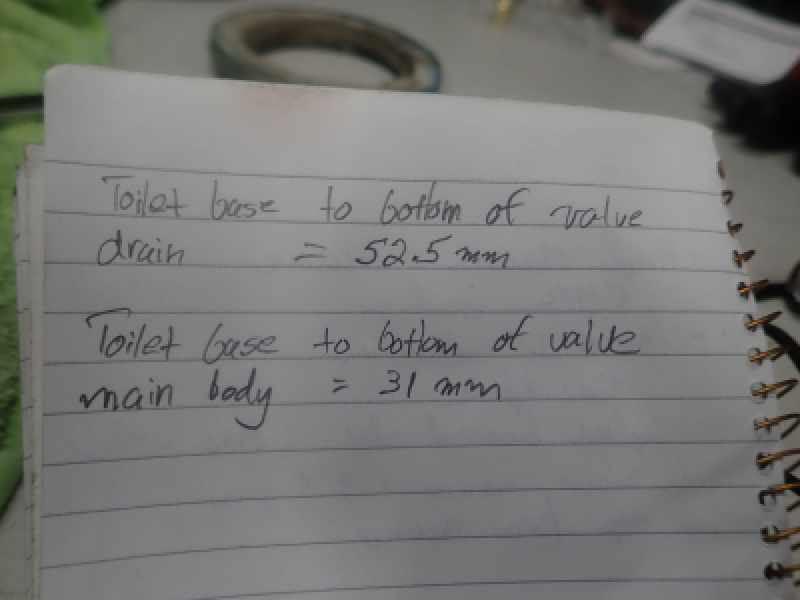 Toilet base to bottom of value
drain = 52.5 mm
Toilet base to bottom of value
main body = 31 mm